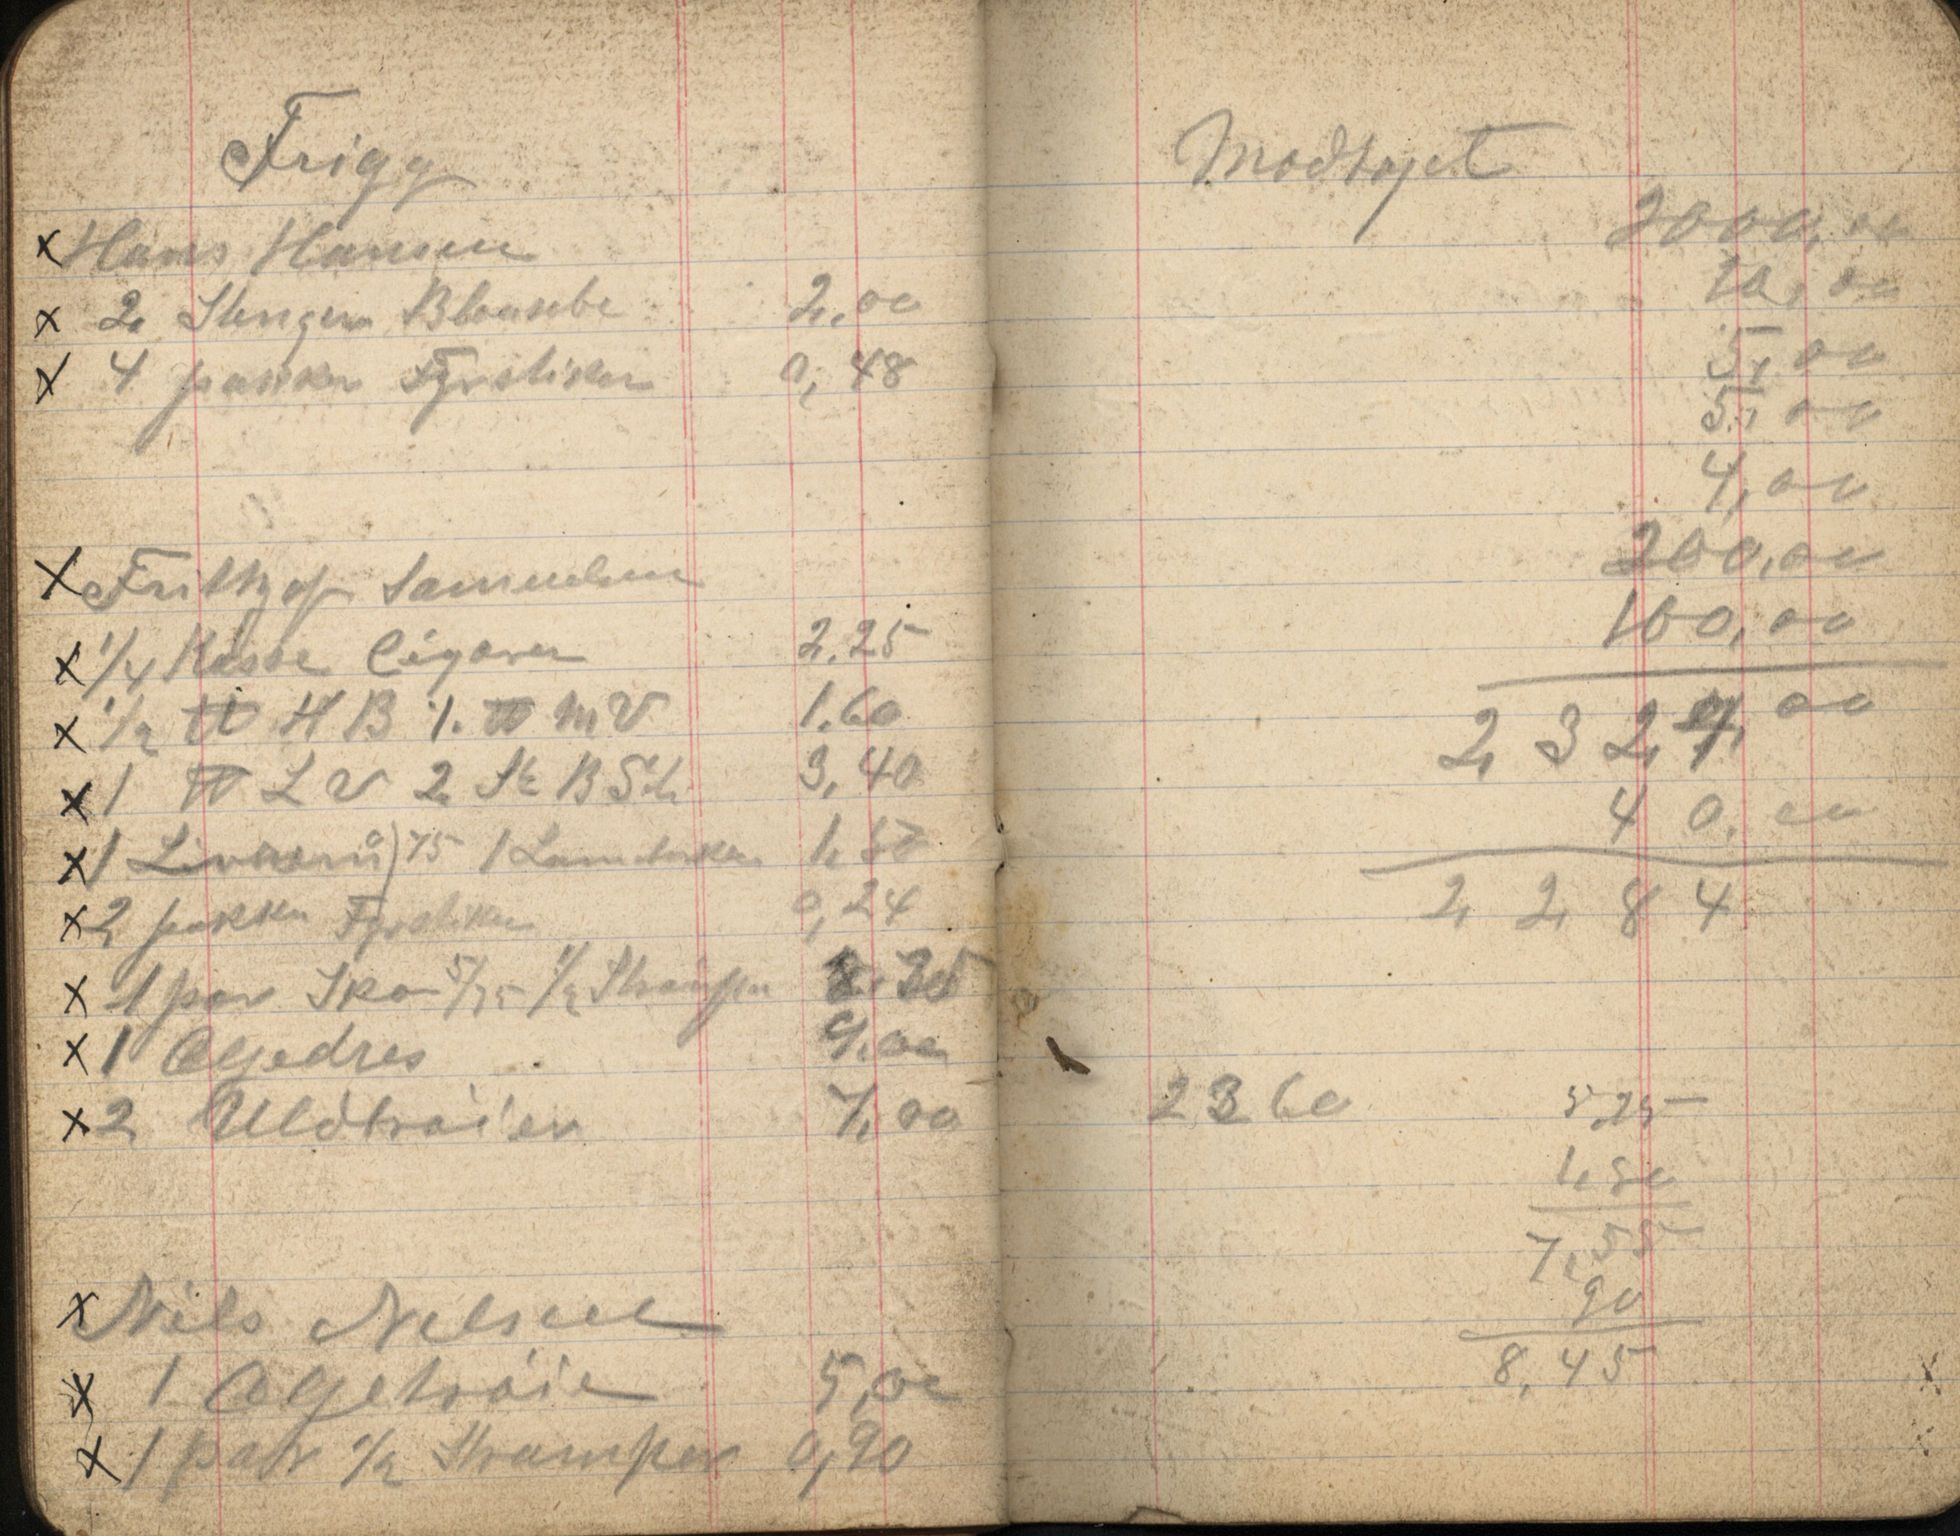 Frigg
x Hans Hansen
x 2 Stenger Blankbe 2,00
x 4 pakker Fyrstiker 0,48
x Frithjof Samuelsen
x 1/4 Kasse Cigarer 2,25
x 1/2 ℔ H B 1. ℔ M V 1.60
x 1 ℔ L V 2 St B St. 3,40
x 1 75 1 1,50
x 2 pakker Fyrstiker 0,24
x 1 par Sko 5/75 1/2 Strømper 8.35
x 1 Oljedres 9,00
x 2 Uldtrøier 7,00
x Nils Nelsen
x 1 Oljetrøie 5,00
x 1 par 1/2 Strømper 0,90
Modtaget
2000,00
10,00
5,00
5,00
4,00
200,00
100,00
2324,00
40,00
2284
2360
5,75
1,80
7,55
90
8,45